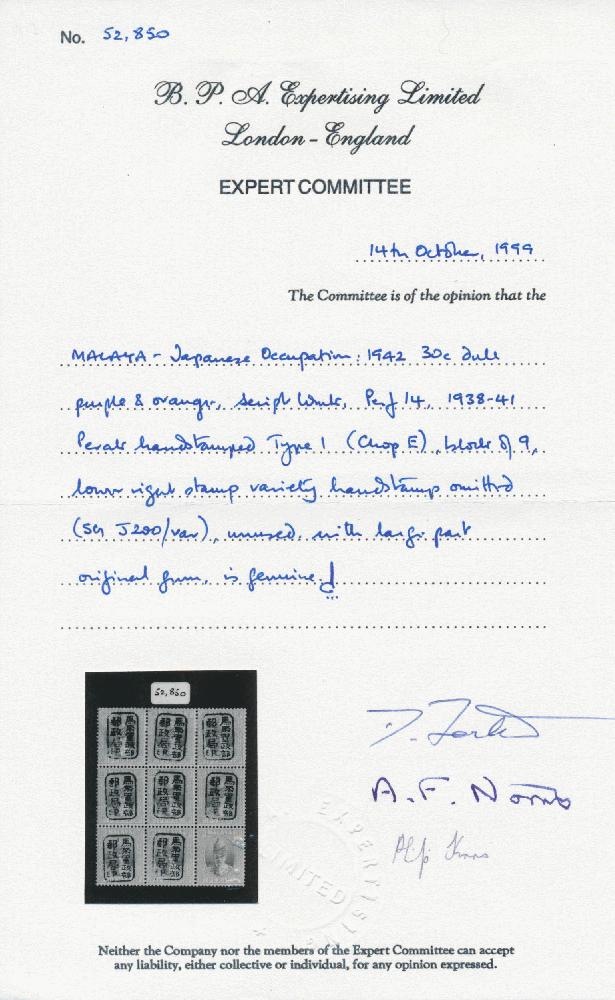 No. 52,850
B. P. A. Expertising Limited
London - England
EXPERT COMMITTEE
14th October, 1999
The Committee is of the opinion that the
MALAYA - Japanese Occupation: 1942 30c dull
purple & orange, script wmk, Perf 14, 1938-41
Perak handstamped Type 1 (Chop E), block of 9,
lower right stamp variety handstamp omitted
(SG J200/var), unused, with large part
original gum, is genuine.
52,850
A. F. Norris
EXPERTISING
LIMITED
Neither the Company nor the members of the Expert Committee can accept
any liability, either collective or individual, for any opinion expressed.